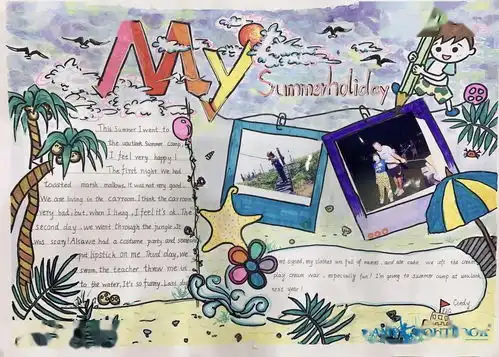 My
Summerholiday
This Summer I went to
the youtlook Summer camp.
I feel very happy!
The first night we had
toasted marsh mallows. It was not very good.
We are living in the carroom. I think the carroom
very bad, but when I hang, I feel it's ok. The
second day, we went through the jungle. It
was scary! Also we had a costume party and someone
put lipstick on me. Third day, We
swam. the teacher threw me in
to the water, It's so funny. Last day
we signed, my clothes wn full of names. and ate cake. we left the cream
play cream war, especially fun! I'm going to summer camp at
next year!
Cindy